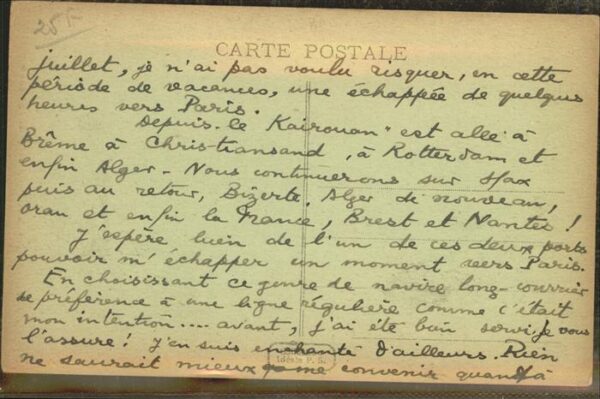 25 F
CARTE POSTALE
juillet, je n'ai pas voulu risquer, en cette
période de vacances, une échappée de quelques
heures vers Paris.
Depuis le Kairouan" est allé à
Brême à Christiansand, à Rotterdam et
enfin Alger - Nous continuerons sur Sfax
puis au retour, Bizerte, Alger de nouveau,
Oran et enfin la France, Brest et Nantes !
J'espère bien de l'un de ces deux ports
pouvoir m'échapper un moment vers Paris.
En choisissant ce genre de navire long-courrier
de préférence à une ligne régulière comme c'était
mon intention.... avant, j'ai été bien servi, je vous
l'assure ! J'en suis enchanté d'ailleurs. Rien
ne saurait mieux me convenir quant à